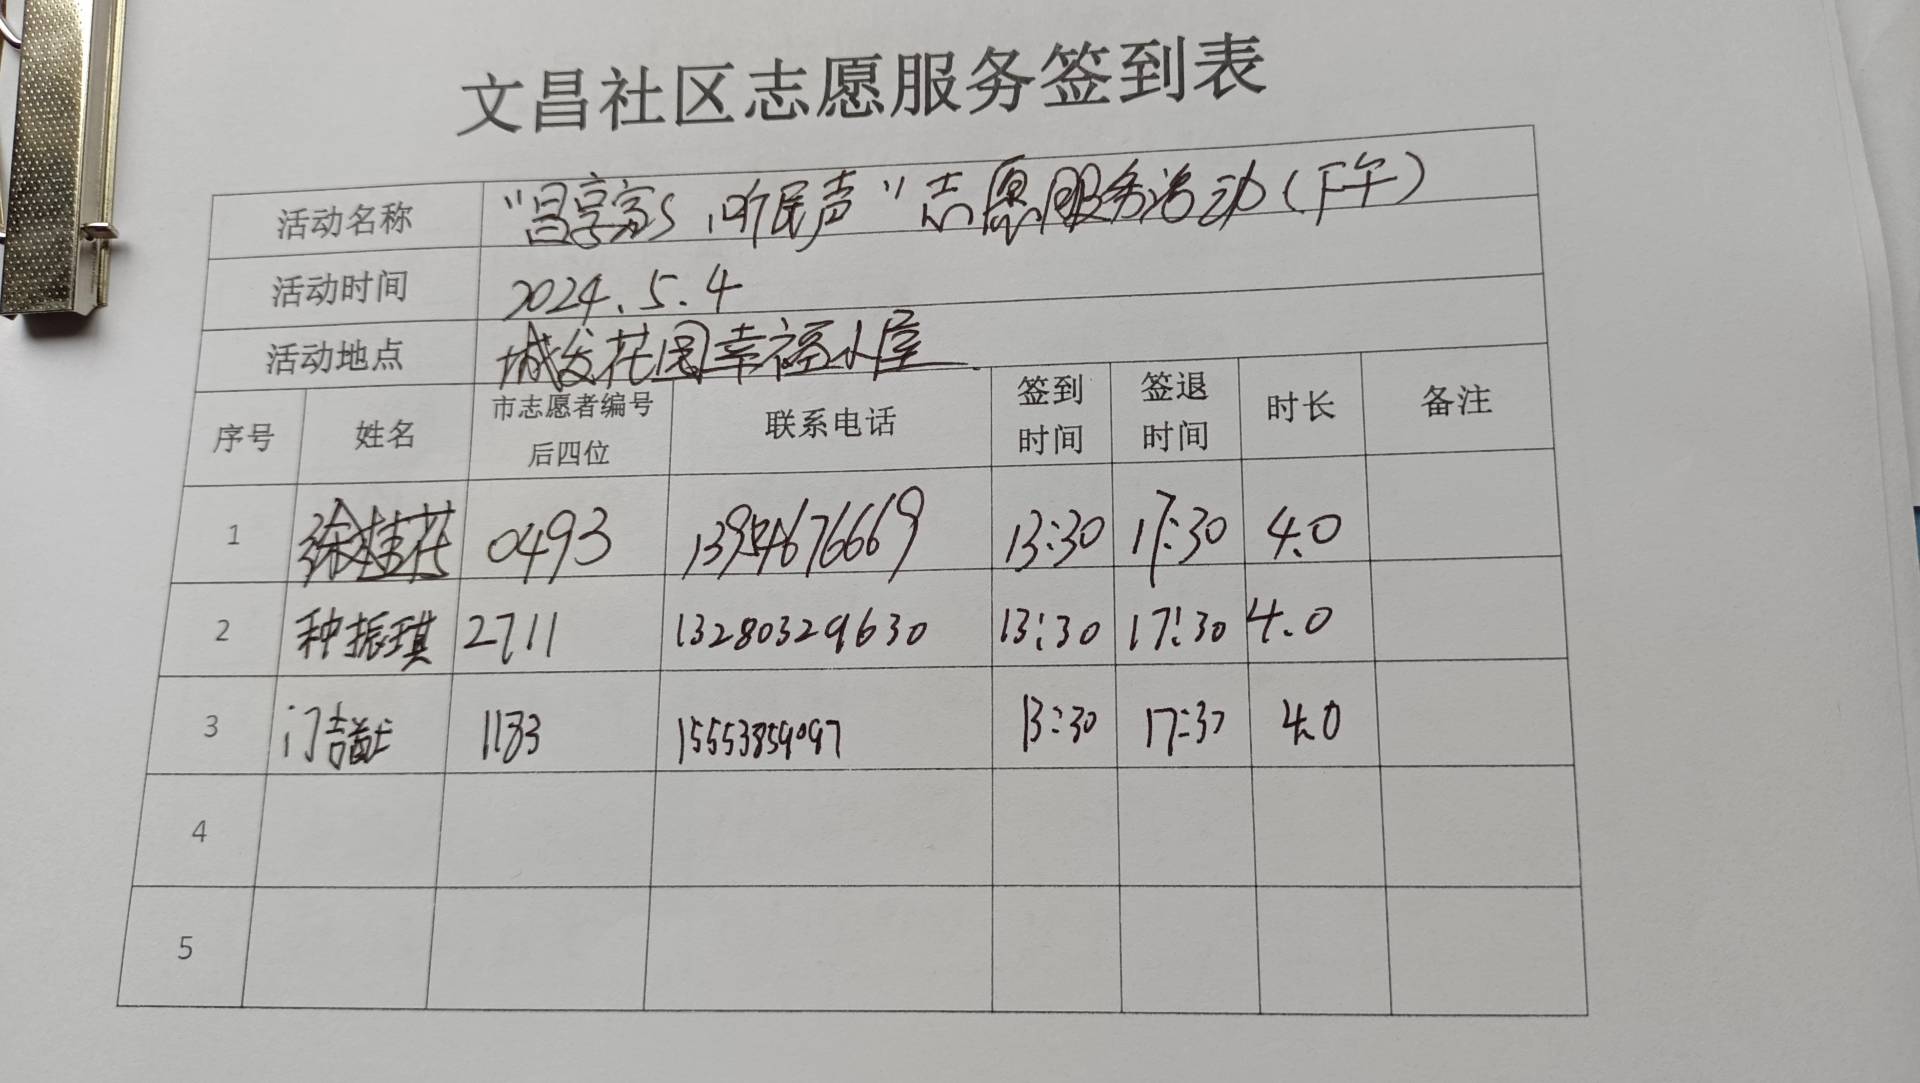 文昌社区志愿服务签到表
活动名称 "昌享 听民声"志愿服务活动(下午)
活动时间 2024.5.4
活动地点 城发花园幸福小屋
序号 姓名 市志愿者编号后四位 联系电话 签到时间 签退时间 时长 备注
1 徐桂花 0493 676669 13:30 17:30 4.0
2 种振琪 2711 13280329630 13:30 17:30 4.0
3 门 1183 15553859097 13:30 17:30 4.0
4
5